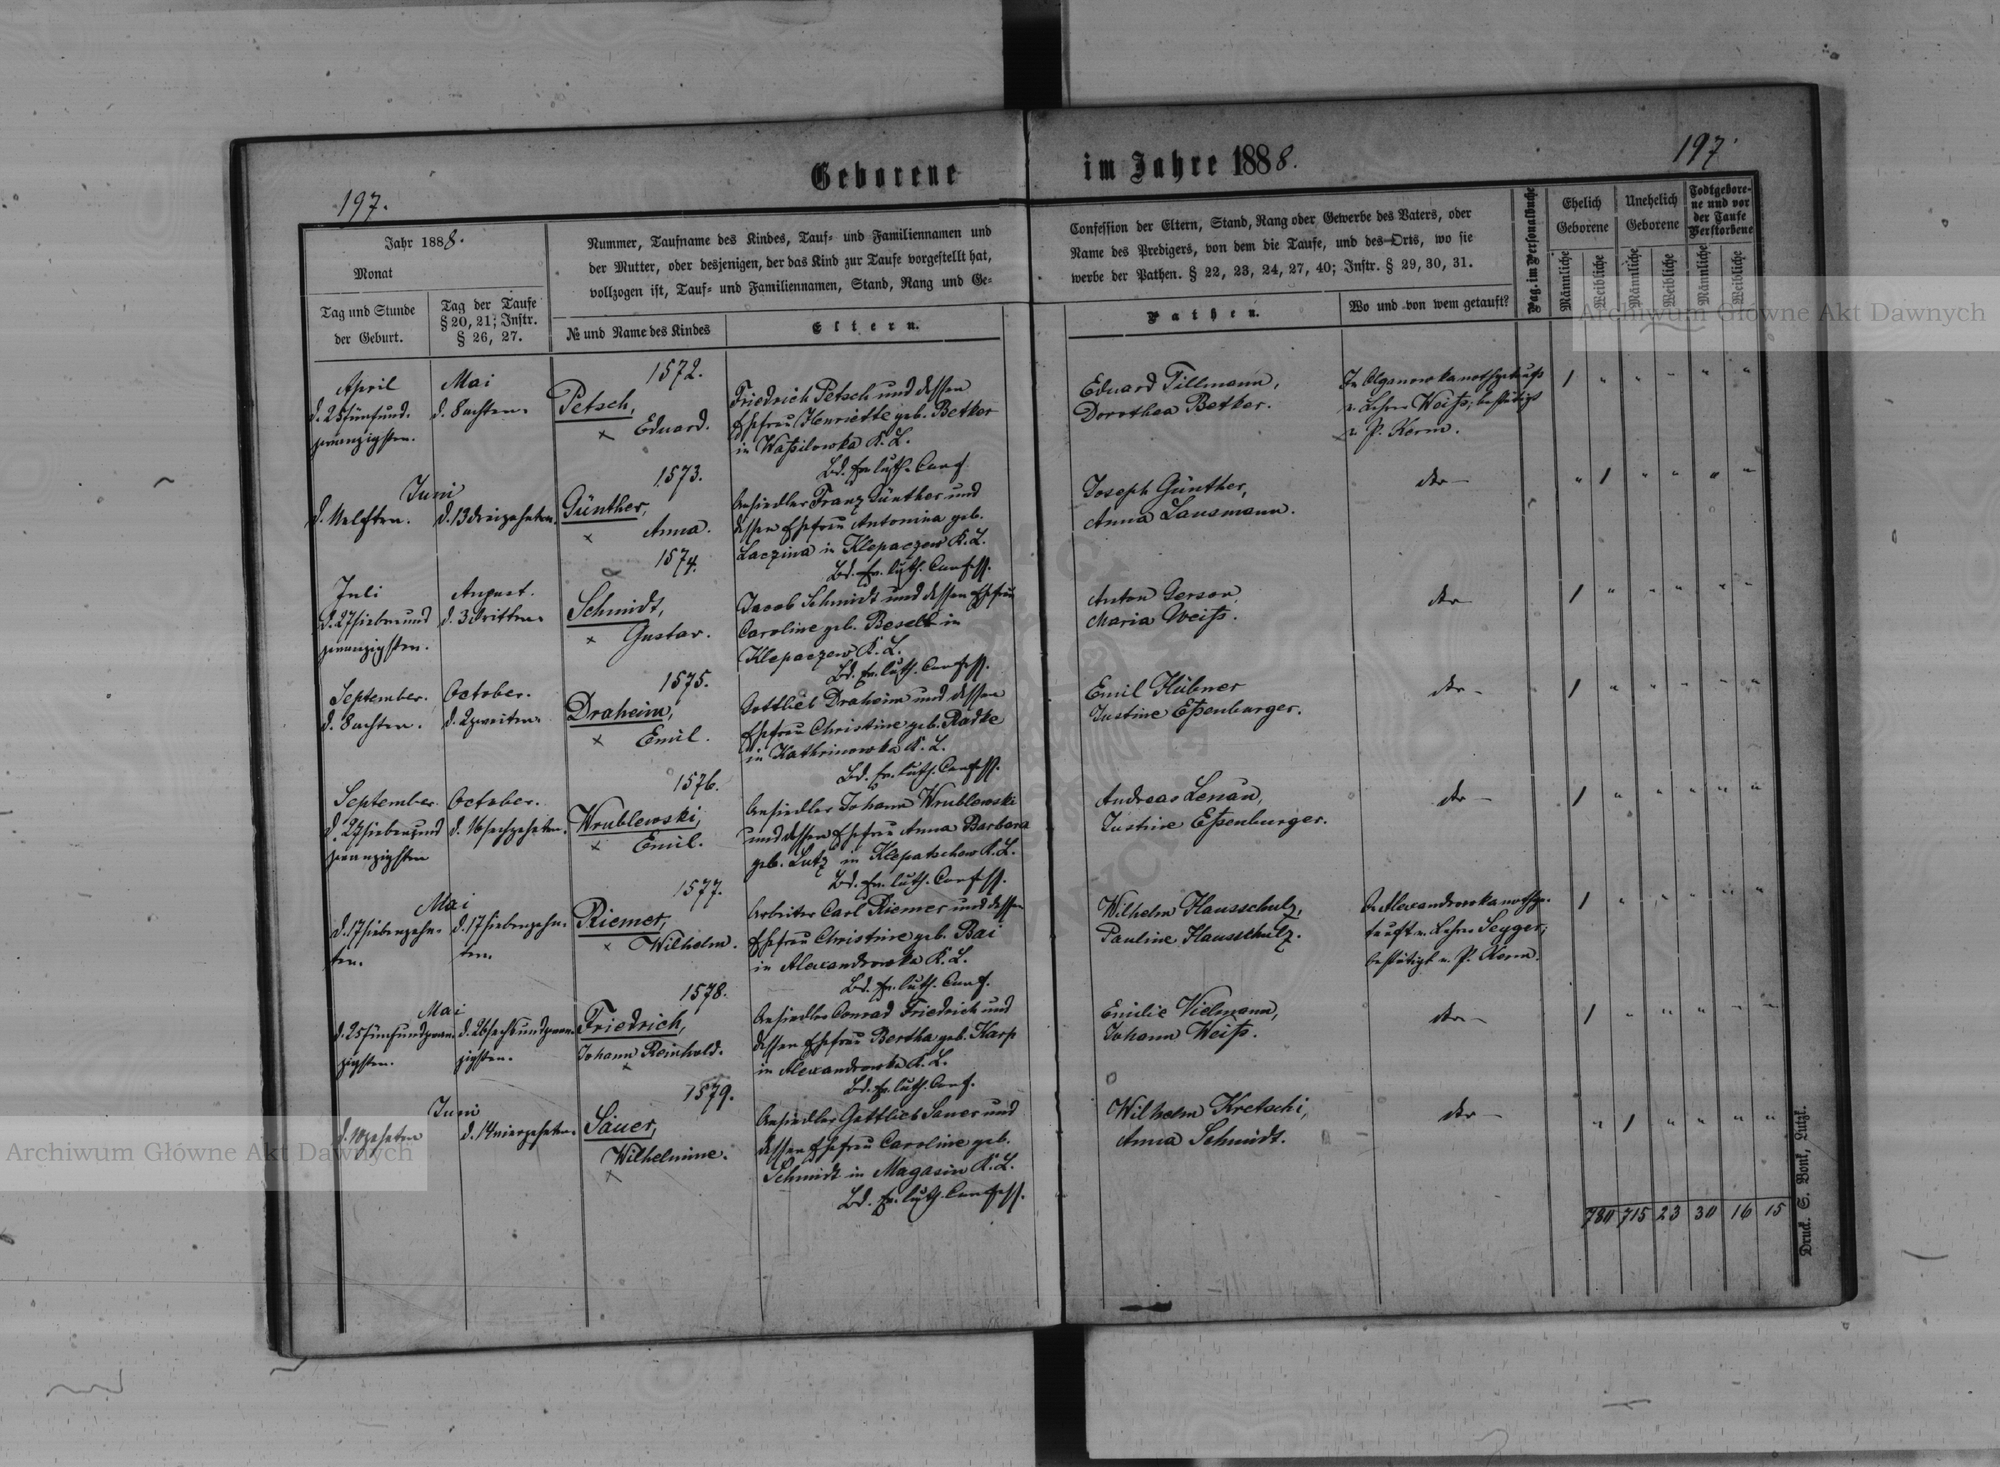 197.
Geborene
im Jahre 1888.
197
Jahr 1888.
Monat
Tag und Stunde
der Geburt.
Tag der Taufe
§ 20, 21; Instr.
§ 26, 27.
Nummer, Taufname des Kindes, Tauf- und Familiennamen und
der Mutter, oder desjenigen, der das Kind zur Taufe vorgestellt hat,
vollzogen ist, Tauf- und Familiennamen, Stand, Rang und Ge-
№ und Name des Kindes
Eltern.
Confession der Eltern, Stand, Rang oder Gewerbe des Vaters, oder
Name des Predigers, von dem die Taufe, und des Orts, wo sie
werbe der Pathen. § 22, 23, 24, 27, 40; Instr. § 29, 30, 31.
Pathen.
Wo und von wem getauft?
Pag. im Personalbuche
Ehelich
Geborene
Unehelich
Geborene
Todtgebore-
ne und vor
der Taufe
Verstorbene
Männliche
Weibliche
Männliche
Weibliche
Männliche
Weibliche
April
d. 25 fünfund-
zwanzigsten.
Mai
d. 8 achten.
1572.
Petsch,
× Eduard.
Friedrich Petsch und dessen
Ehefrau Henriette geb. Betker
in Waßilowka K. L.
Bd. Ev. luth. Conf.
Eduard Tillmann,
Dorothea Betker.
In Olganowka nothgetauft
v. Lehrer Weiß; bestätigt
v. P. Kerm.
1 " " " " "
Juni
d. 11 elften.
d. 13 dreizehnten.
1573.
Günther,
× Anna.
Ansiedler Franz Günther und
dessen Ehefrau Antonina geb.
Laczina in Klepaczew K. L.
Bd. Ev. luth. Confess.
Joseph Günther,
Anna Lausmann.
" 1 " " " "
Juli
d. 27 siebenund
zwanzigsten.
August.
d. 3 dritten.
1574.
Schmidt,
× Gustav.
Jacob Schmidt und dessen Ehefrau
Caroline geb. Besell in
Klepaczew K. L.
Bd. Ev. luth. Confess.
Anton Gerson,
Maria Weiß.
1 " " " " "
September.
d. 8 achten.
October.
d. 2 zweiten.
1575.
Draheim,
× Emil.
Gottlieb Draheim und dessen
Ehefrau Christine geb. Radke
in Kathrinowka K. L.
Bd. Ev. luth. Confess.
Emil Hübner
Justine Eßenburger.
1 " " " " "
September.
d. 27 siebenund
zwanzigsten
October.
d. 16 sechzehnten.
1576.
Wrublewski,
× Emil.
Ansiedler Johann Wrublewski
und dessen Ehefrau Anna Barbara
geb. Lutz in Klepatschew K. L.
Bd. Ev. luth. Confess.
Andreas Lenau,
Justine Eßenburger.
1 " " " " "
Mai
d. 17 siebenzehn-
ten.
d. 17 siebenzehn-
ten.
1577.
Riemer,
× Wilhelm.
Arbeiter Carl Riemer und dessen
Ehefrau Christine geb. Bai
in Alexandrowka K. L.
Bd. Ev. luth. Conf.
Wilhelm Hausschulz,
Pauline Hausschulz.
In Alexandrowka nothge-
tauft v. Lehrer Seyger;
bestätigt v. P. Kerm.
1 " " " " "
Mai
d. 25 fünfundzwan-
zigsten.
d. 26 sechsundzwan-
zigsten.
1578.
Friedrich,
Johann Reinhold.
×
Ansiedler Conrad Friedrich und
dessen Ehefrau Bertha geb. Karp
in Alexandrowka K. L.
Bd. Ev. luth. Conf.
Emilie Vielmann,
Johann Weiß.
1 " " " " "
Juni
d. 10 zehnten
d. 14 vierzehnten.
1579.
Sauer,
Wilhelmine.
×
Ansiedler Gottlieb Sauer und
dessen Ehefrau Caroline geb.
Schmidt in Magasin K. L.
Bd. Ev. luth. Confess.
Wilhelm Kretschi,
Anna Schmidt.
" 1 " " " "
780 715 23 30 16 15
Druck. S. Bonk, Lutzk.
Archiwum Główne Akt Dawnych
Archiwum Główne Akt Dawnych